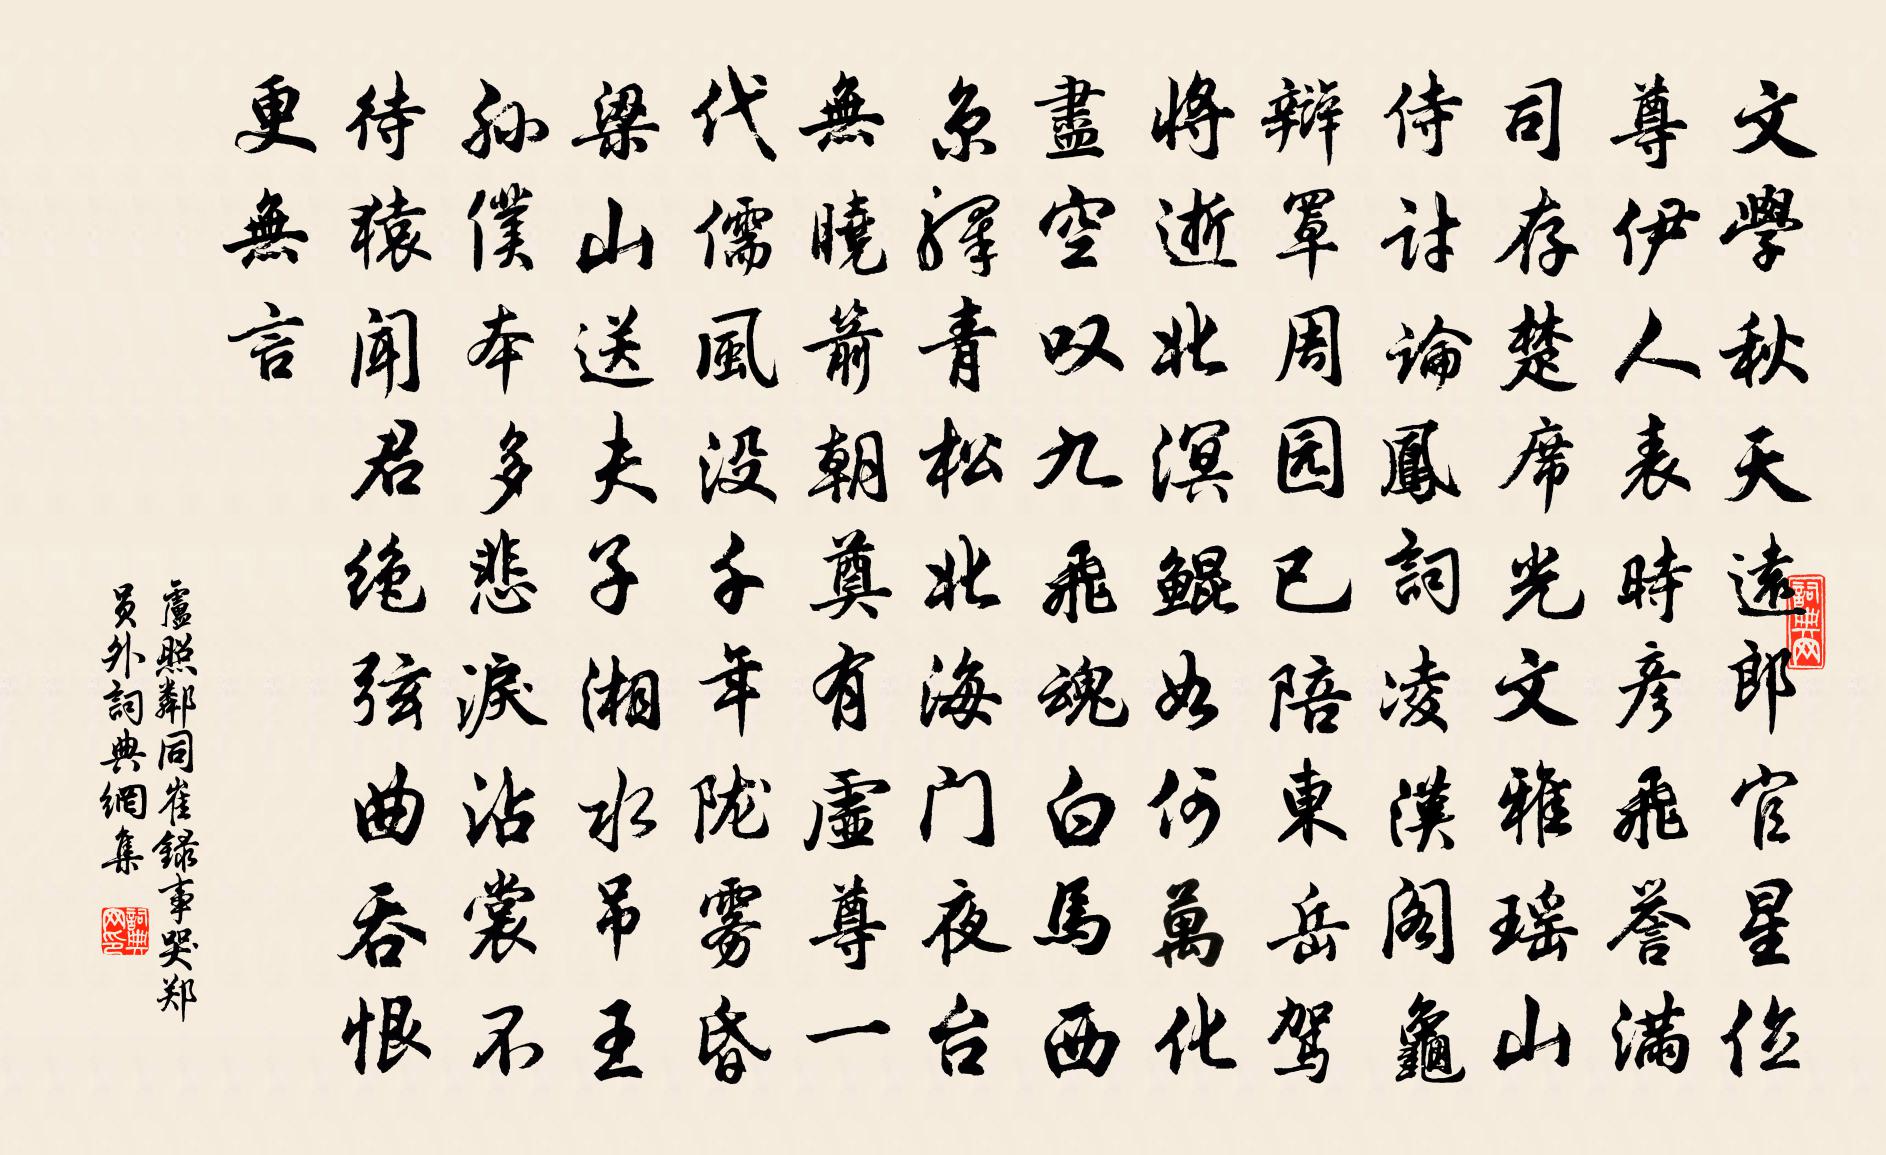 文學秋天遠郎官星位
尊伊人表時彦飛譽滿
司存楚席光文雅瑶山
侍討論鳳詞凌漢阁龜
辯罩周园已陪東岳駕
将逝北溟鲲如何萬化
盡空叹九飛魂白馬西
京驛青松北海门夜台
無曉箭朝奠有虛尊一
代儒風没千年陇雾昏
梁山送夫子湘水吊王
孙僕本多悲淚沾裳不
待猿闻君绝弦曲吞恨
更無言
盧照鄰同崔録事哭郑
员外詞典網集
詞典网
詞典网印